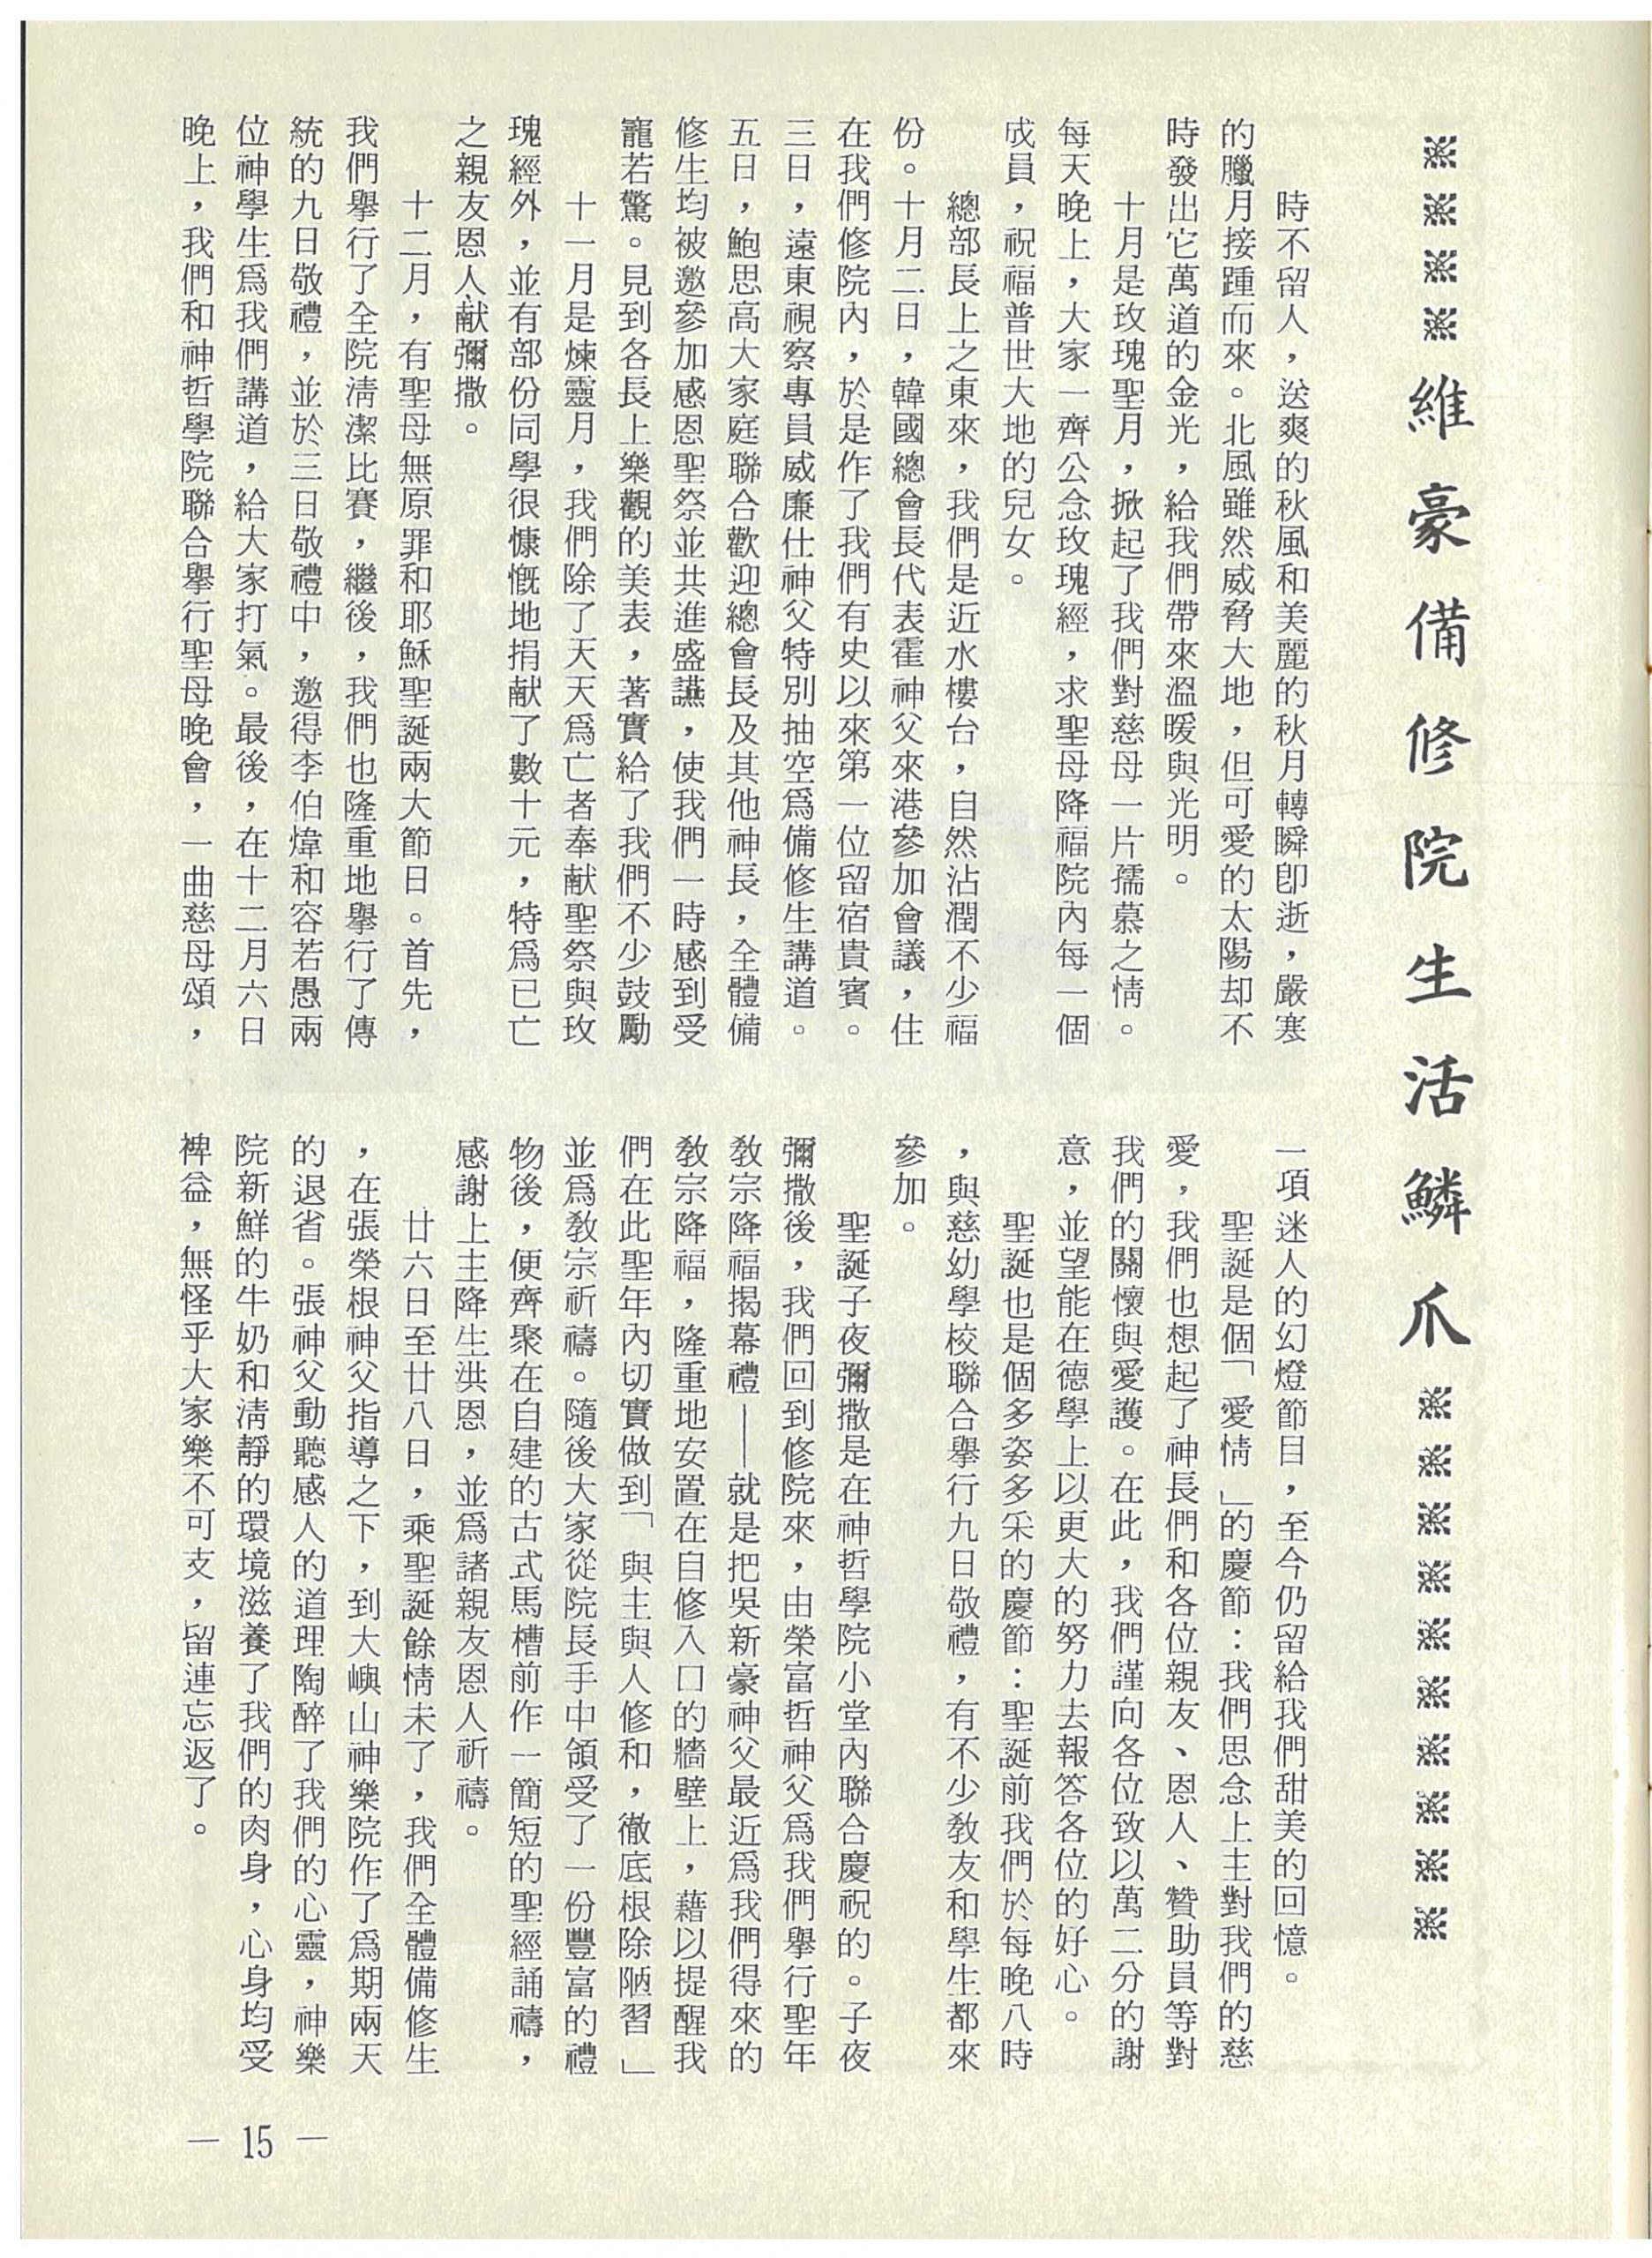 ※※※※維豪備修院生活鱗爪※※※※※※※※※※
時不留人，送爽的秋風和美麗的秋月轉瞬卽逝，嚴寒
的臘月接踵而來。北風雖然威脅大地，但可愛的太陽却不
時發出它萬道的金光，給我們帶來溫暖與光明。
十月是玫瑰聖月，掀起了我們對慈母一片孺慕之情。
每天晚上，大家一齊公念玫瑰經，求聖母降福院內每一個
成員，祝福普世大地的兒女。
總部長上之東來，我們是近水樓台，自然沾潤不少福
份。十月二日，韓國總會長代表霍神父來港參加會議，住
在我們修院內，於是作了我們有史以來第一位留宿貴賓。
三日，遠東視察專員威廉仕神父特別抽空爲備修生講道。
五日，鮑思高大家庭聯合歡迎總會長及其他神長，全體備
修生均被邀參加感恩聖祭並共進盛讌，使我們一時感到受
寵若驚。見到各長上樂觀的美表，著實給了我們不少鼓勵
十一月是煉靈月，我們除了天天爲亡者奉献聖祭與玫
瑰經外，並有部份同學很慷慨地捐献了數十元，特爲已亡
之親友恩人献彌撒。
十二月，有聖母無原罪和耶穌聖誕兩大節日。首先，
我們舉行了全院淸潔比賽，繼後，我們也隆重地舉行了傳
統的九日敬禮，並於三日敬禮中，邀得李伯煒和容若愚兩
位神學生爲我們講道，給大家打氣。最後，在十二月六日
晚上，我們和神哲學院聯合舉行聖母晚會，一曲慈母頌，
一項迷人的幻燈節目，至今仍留給我們甜美的回憶。
聖誕是個「愛情」的慶節：我們思念上主對我們的慈
愛，我們也想起了神長們和各位親友、恩人、贊助員等對
我們的關懷與愛護。在此，我們謹向各位致以萬二分的謝
意，並望能在德學上以更大的努力去報答各位的好心。
聖誕也是個多姿多采的慶節：聖誕前我們於每晚八時
，與慈幼學校聯合舉行九日敬禮，有不少敎友和學生都來
參加。
聖誕子夜彌撒是在神哲學院小堂內聯合慶祝的。子夜
彌撒後，我們回到修院來，由榮富哲神父爲我們舉行聖年
敎宗降福揭幕禮——就是把吳新豪神父最近爲我們得來的
敎宗降福，隆重地安置在自修入口的牆壁上，藉以提醒我
們在此聖年內切實做到「與主與人修和，徹底根除陋習」
並爲敎宗祈禱。隨後大家從院長手中領受了一份豐富的禮
物後，便齊聚在自建的古式馬槽前作一簡短的聖經誦禱，
感謝上主降生洪恩，並爲諸親友恩人祈禱。
廿六日至廿八日，乘聖誕餘情未了，我們全體備修生
，在張榮根神父指導之下，到大嶼山神樂院作了爲期兩天
的退省。張神父動聽感人的道理陶醉了我們的心靈，神樂
院新鮮的牛奶和淸靜的環境滋養了我們的肉身，心身均受
裨益，無怪乎大家樂不可支，留連忘返了。
— 15 —